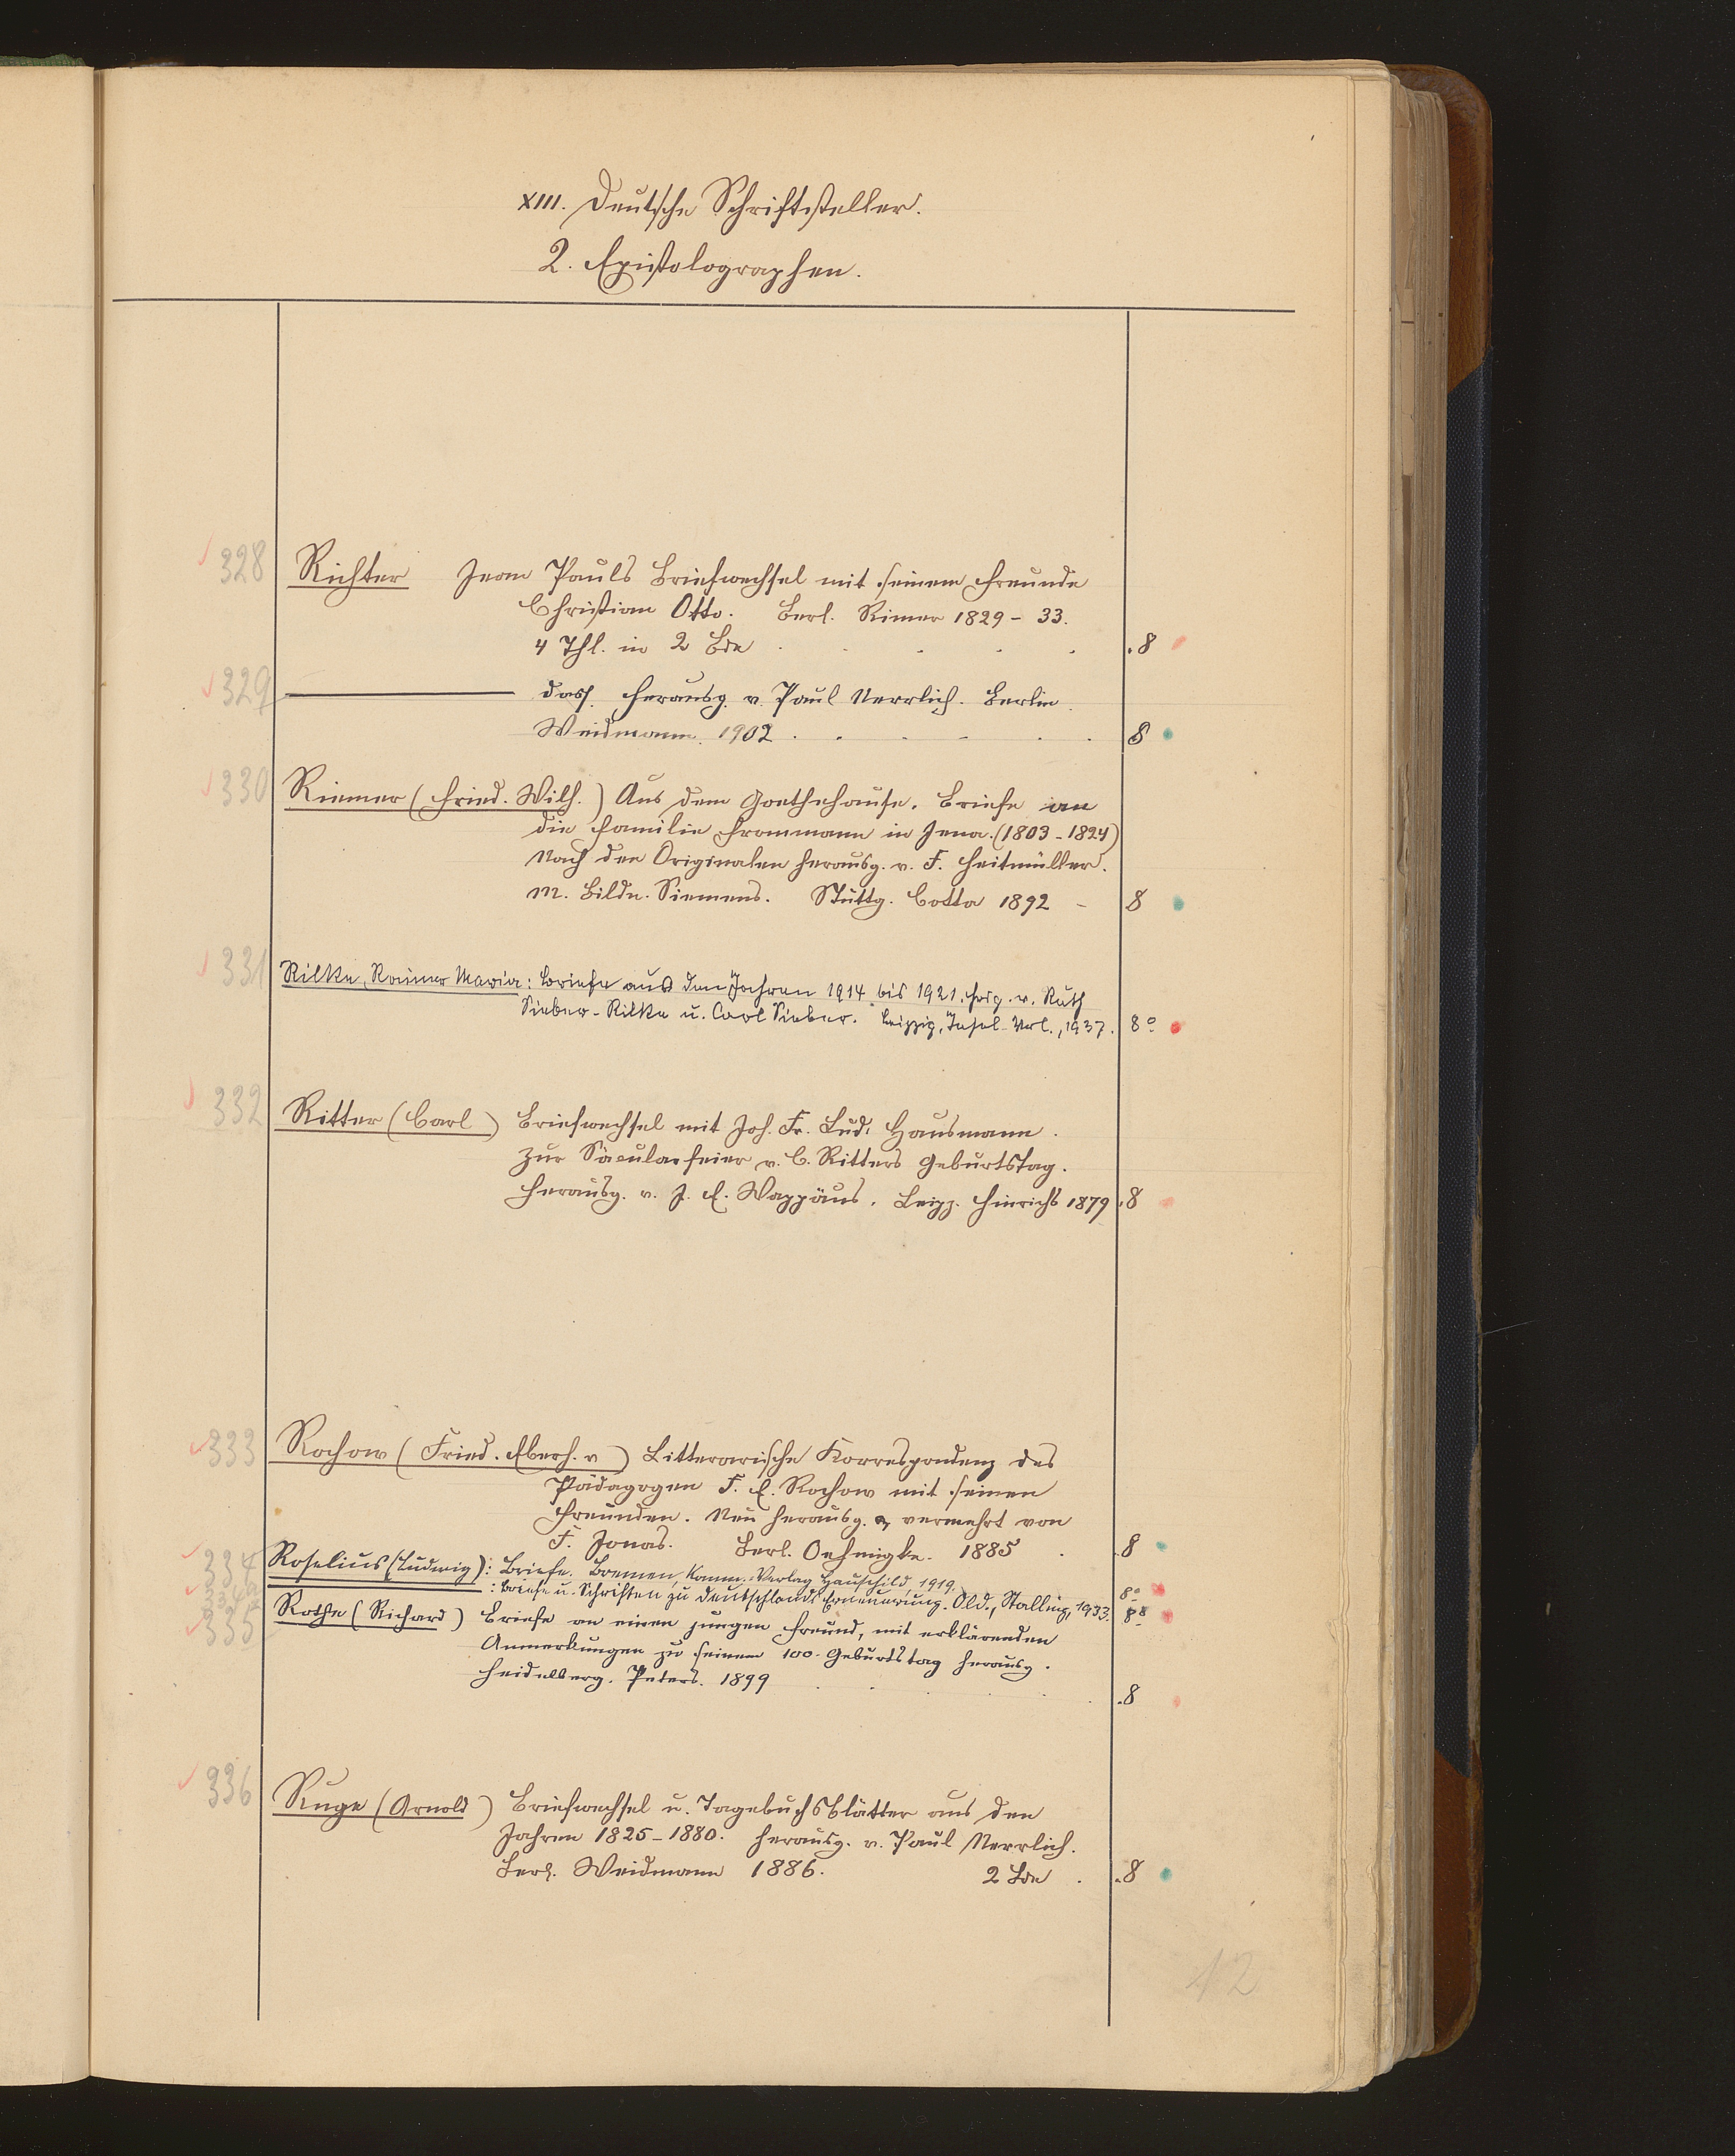 XIII. Deutsche Schriftsteller.
2. Epistolographen.
328 Richter Jean Pauls Briefwechsel mit seinem Freunde
Christian Otto. Berl. Rimer 1829-33.
4 Thl. in 2 Bde . . . . . 8
329 ——— dass. herausg. v. Paul Nerrlich. Berlin.
Weidmann. 1902 . . . . . . 8
330 Riemer (Fried. Wilh.) Aus dem Goethehause. Briefe an
die Familie Frommann in Jena. (1803-1824)
Nach den Originalen herausg. v. F. Heitmüller.
M. Bildn. Riemers. Stuttg. Cotta 1892 - 8
331 Rilke, Rainer Maria: Briefe aus den Jahren 1914 bis 1921. Hrsg. v. Ruth
Sieber-Rilke u. Carl Sieber. Leipzig, Insel-Verl., 1937. 8°
332 Ritter (Carl) Briefwechsel mit Joh. Fr. Lud. Hausmann.
Zur Säcularfeier v. C. Ritters Geburtstag.
Herausg. v. J. E. Wappäus. Leipz. Hinrichs 1879 . 8
333 Rochow (Fried. Eberh. v) Litterarische Korrespondenz des
Pädagogen F. E. Rochow mit seinen
Freunden. Neu herausg. & vermehrt von
F. Jonas. Berl. Oehmigke. 1885 . . 8
334 Roselius (Ludwig): Briefe. Bremen, Komm.-Verlag Hauschild, 1919. 8°
334a : Briefe u. Schriften zu Deutschlands Erneuerung. Old., Stalling, 1933. 8°
335 Rothe (Richard) Briefe an einen jungen Freund, mit erklärenden
Anmerkungen zu seinem 100. Geburtstag herausg.
Heidelberg. Peters. 1899 . . . . . 8
336 Ruge (Arnold) Briefwechsel u. Tagebuchsblätter aus den
Jahren 1825-1880. Herausg. v. Paul Nerrlich.
Berl. Weidmann 1886. 2 Bde . . 8
12